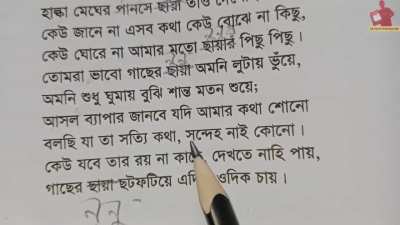 হাল্কা মেঘের পানসে ছায়া তাও
কেউ জানে না এসব কথা কেউ বোঝে না কিছু,
কেউ ঘোরে না আমার মতো ছায়ার পিছু পিছু।
তোমরা ভাবো গাছের ছায়া অমনি লুটায় ভুঁয়ে,
অমনি শুধু ঘুমায় বুঝি শান্ত মতন শুয়ে;
আসল ব্যাপার জানবে যদি আমার কথা শোনো
বলছি যা তা সত্যি কথা, সন্দেহ নাই কোনো।
কেউ যবে তার রয় না কাছে, দেখতে নাহি পায়,
গাছের ছায়া ছটফটিয়ে এদিক ওদিক চায়।